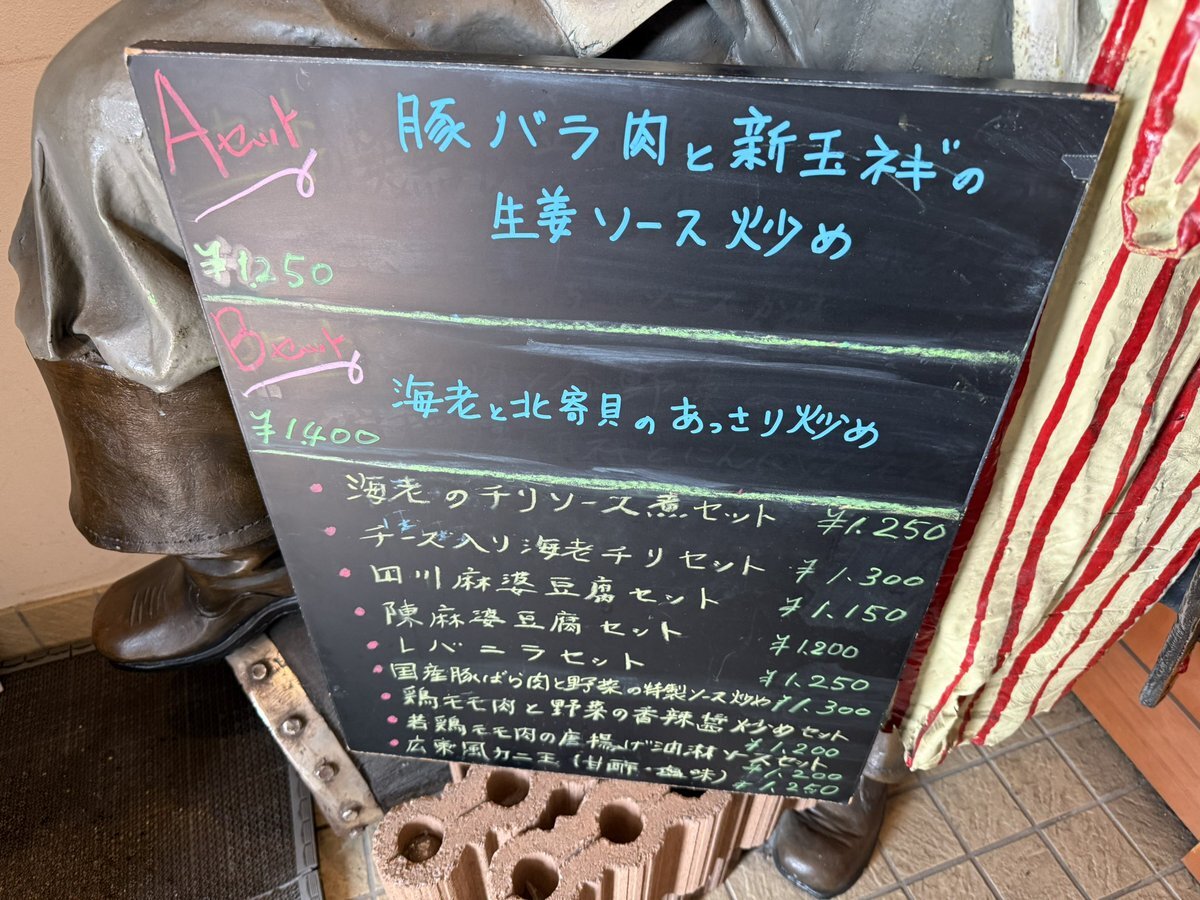 Aセット
豚バラ肉と新玉ネギの
生姜ソース炒め
¥1.250
Bセット
海老と北寄貝のあっさり炒め
¥1.400
・海老のチリソース煮セット ¥1.250
・チーズ入り海老チリセット ¥1.300
・四川麻婆豆腐セット ¥1.150
・陳麻婆豆腐セット ¥1.200
・レバニラセット ¥1.250
・国産豚ばら肉と野菜の特製ソース炒め ¥1.300
・鶏モモ肉と野菜の香辣醤炒めセット ¥1.200
・若鶏モモ肉の唐揚げ油淋ソースセット ¥1.200
・広東風カニ玉(甘酢・塩味) ¥1.250